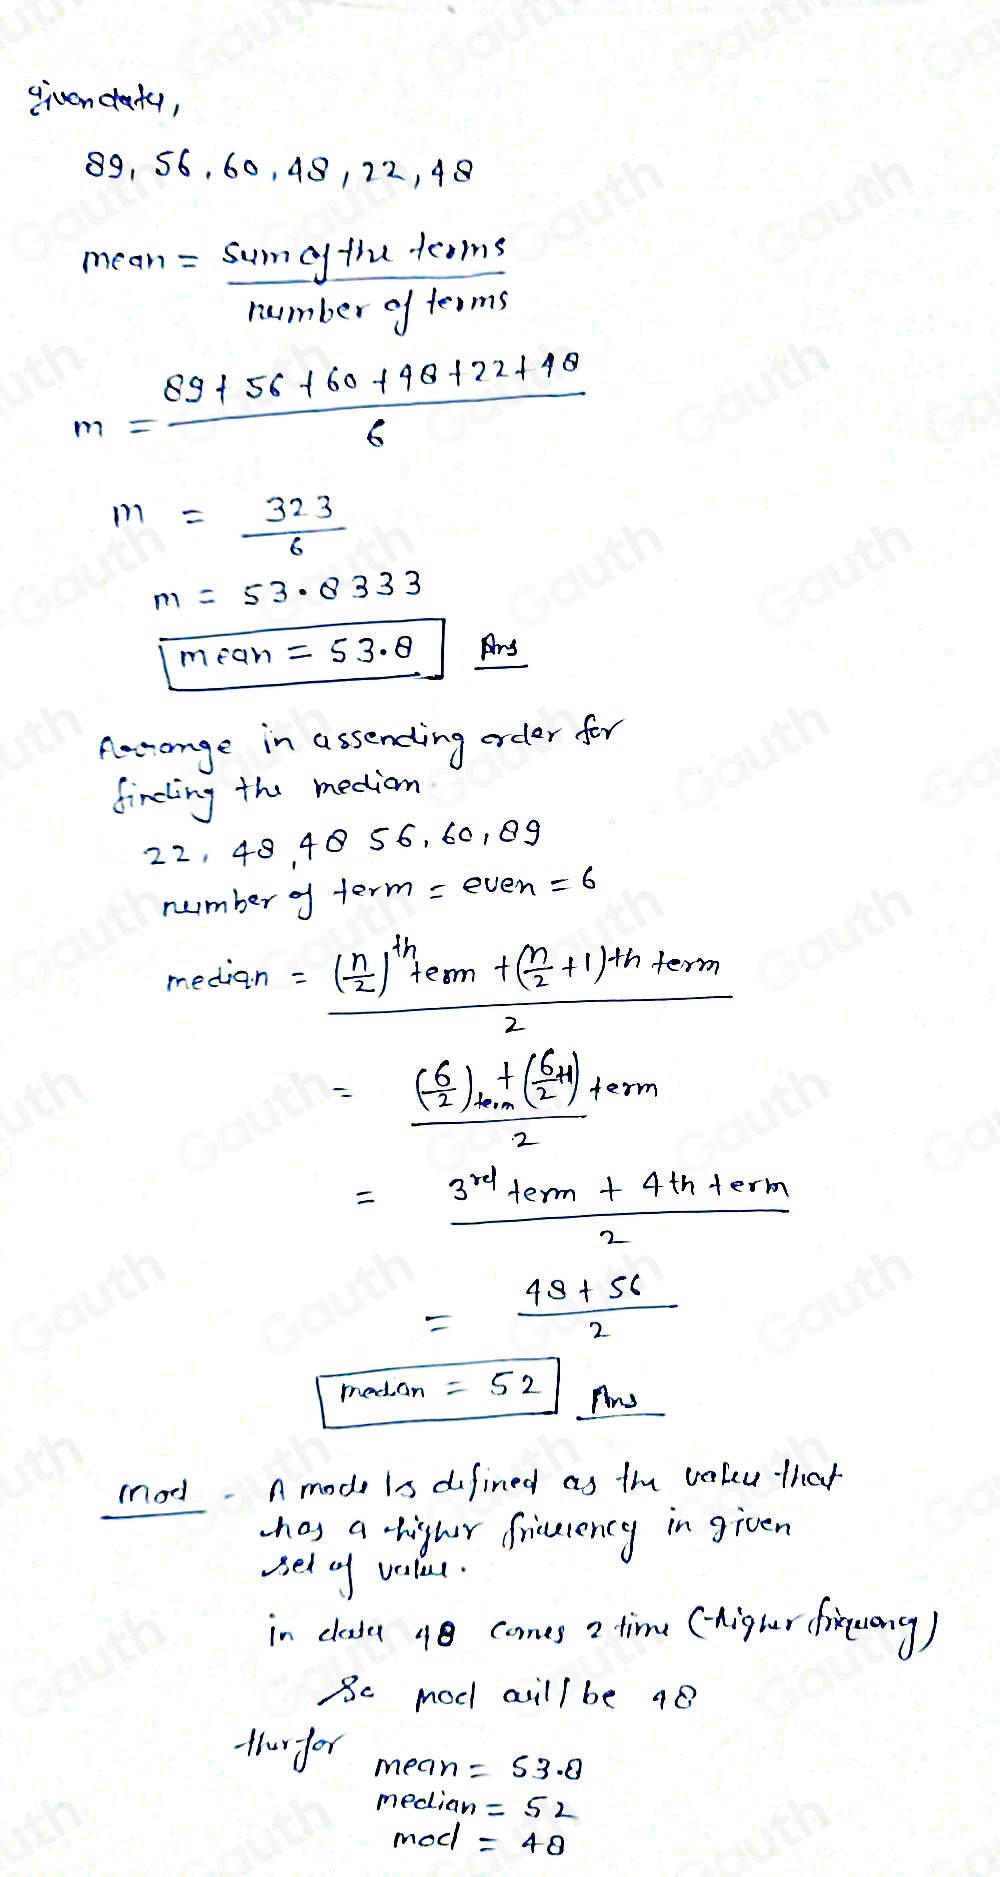 given data,
89, 56, 60, 48, 22, 48
mean = sum of the terms / number of terms
m = 89 + 56 + 60 + 48 + 22 + 48 / 6
m = 323 / 6
m = 53.8333
mean = 53.8 Ans
Arrange in assending order for
finding the median.
22, 48, 48 56, 60, 89
number of term = even = 6
median = (n/2)th term + (n/2 + 1)th term / 2
= (6/2) term + (6/2 + 1) term / 2
= 3rd term + 4th term / 2
= 48 + 56 / 2
median = 52 Ans
mod - A mode is defined as the value that
has a higher friquency in given
set of value.
in data 48 comes 2 time (higher friquency)
So mod will be 48
therfor
mean = 53.8
median = 52
mod = 48
Gauth